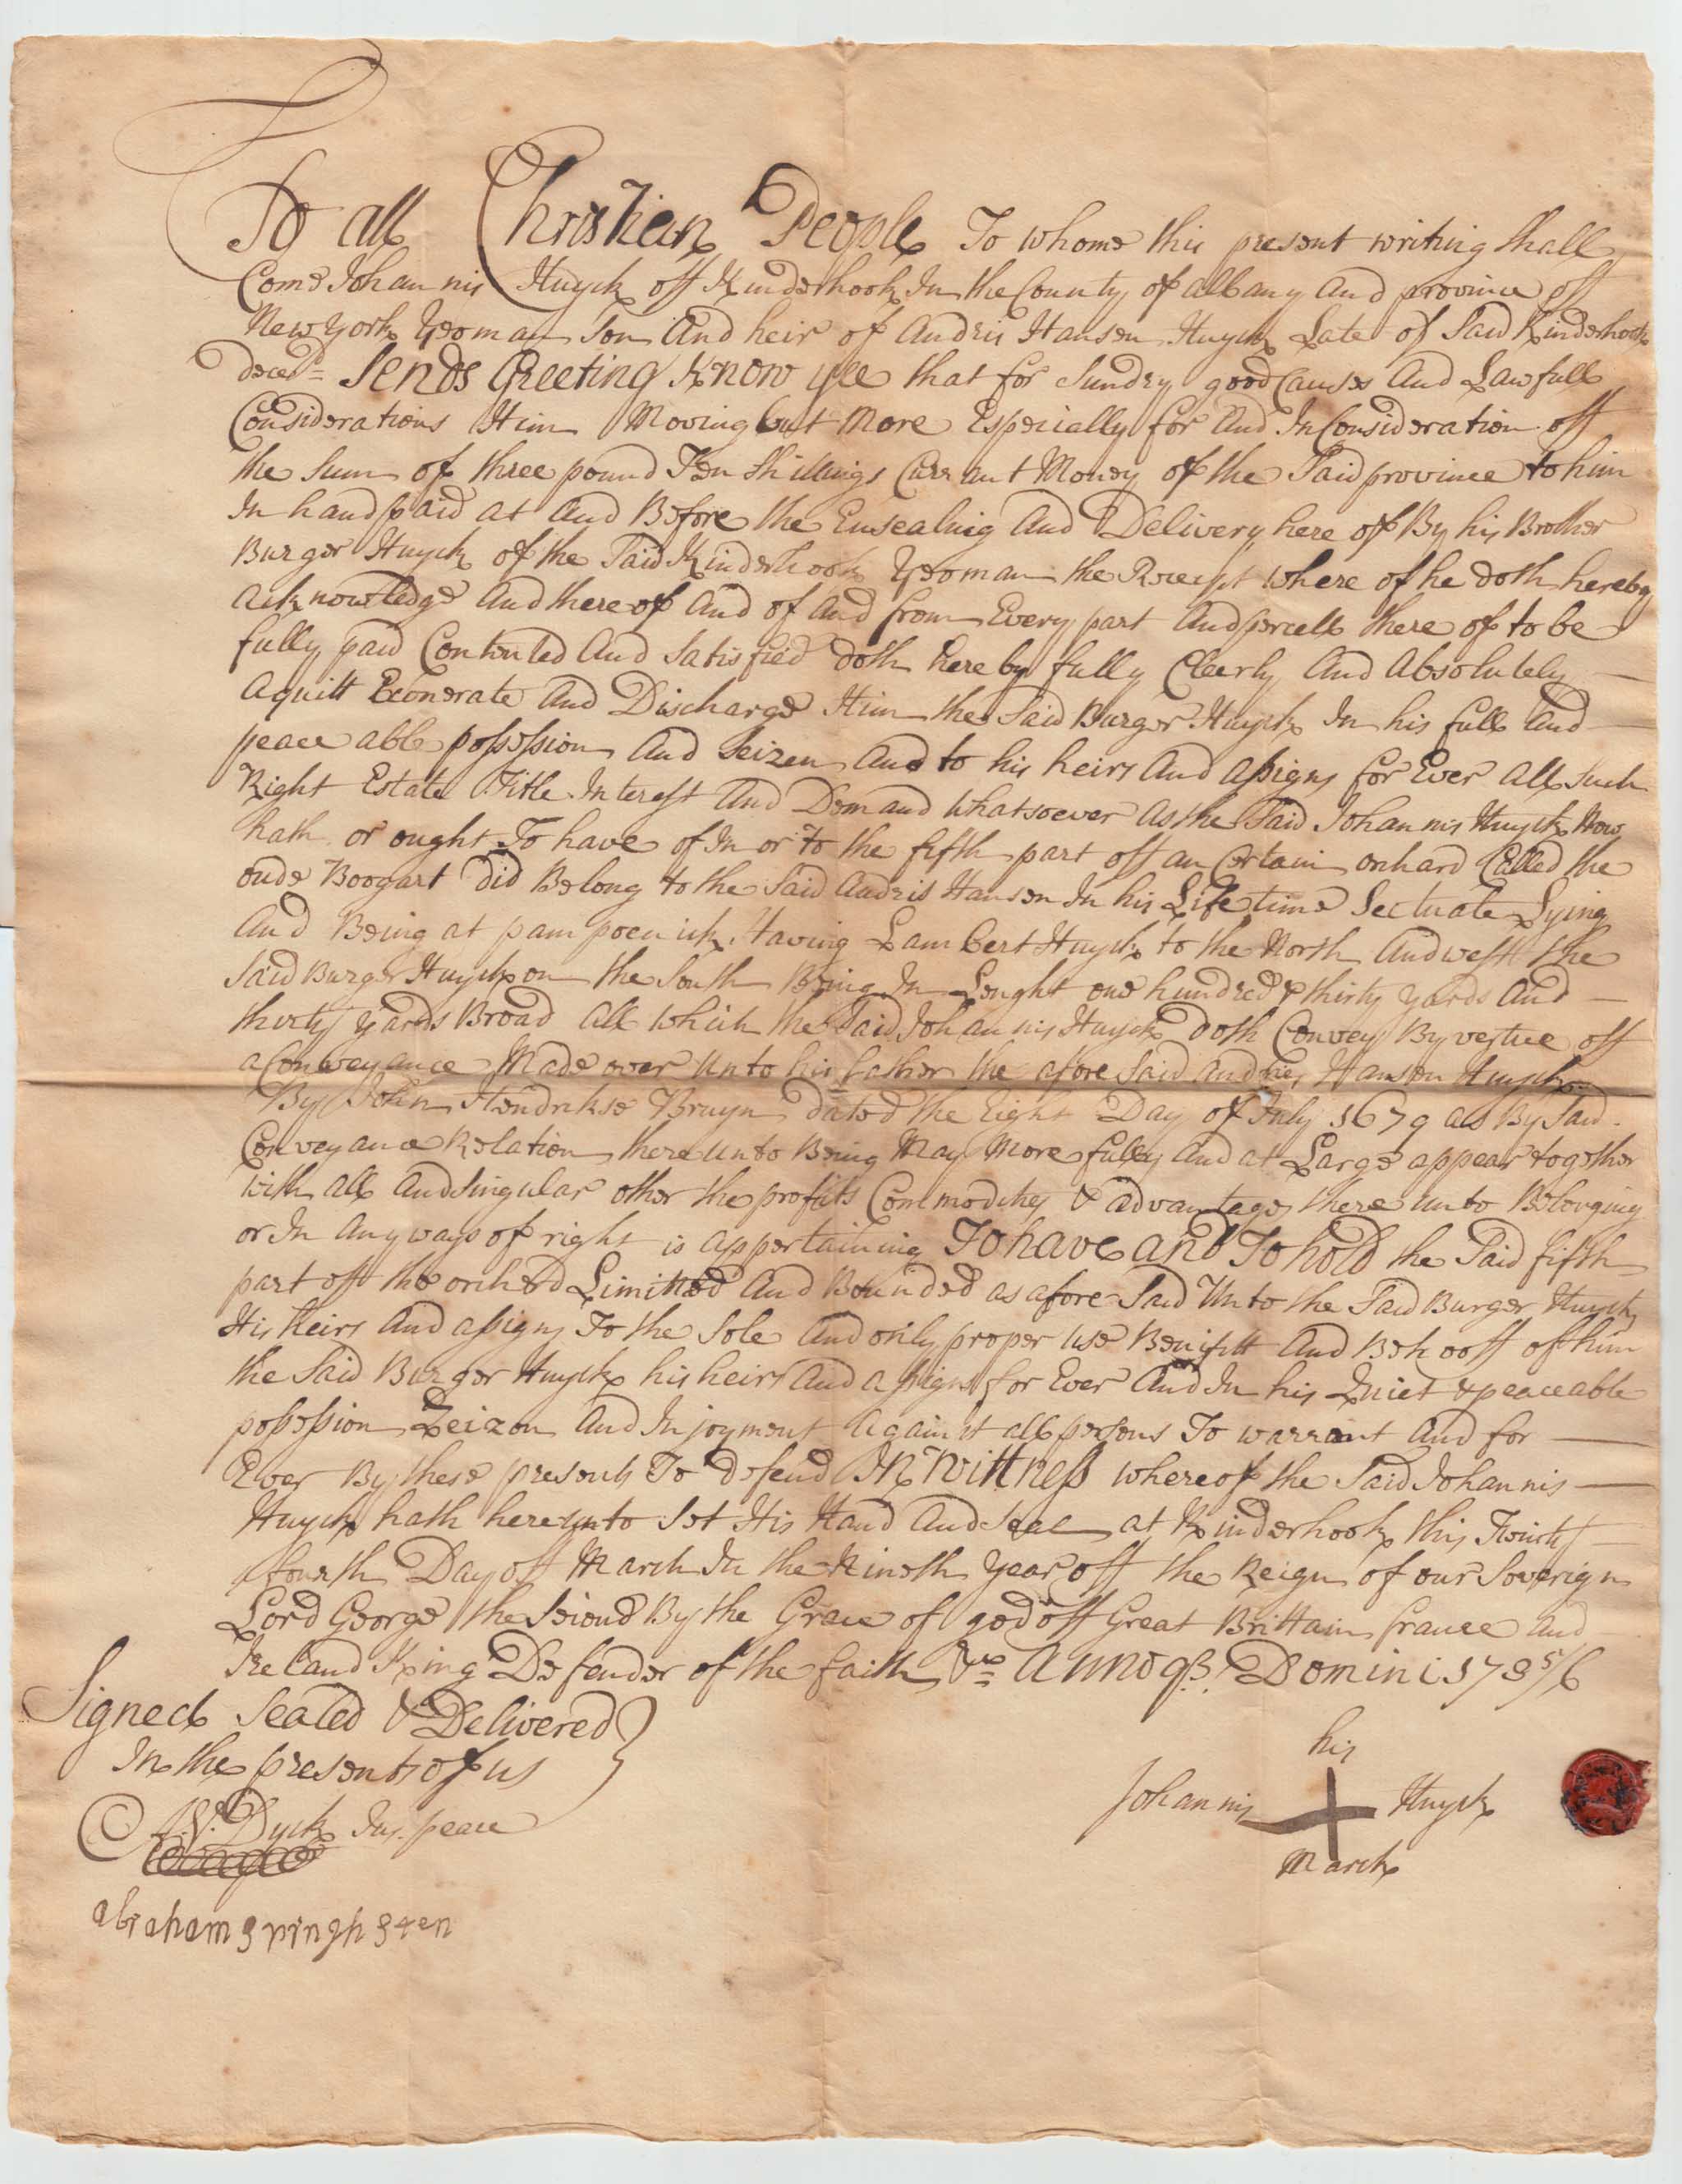 To all Christian People To whome this present writing shall
Come Johannis Huyck off Kinderhook In the County of albany And province off
New York Yeoman Son And heir of Andris Hansen Huyck Late of Said Kinderhook
deced= Sends Greeting Know yee that for Sundry good Causes And Lawfull
Considerations Him Moving but More Especially for And In Consideration off
the Sum of three pound Ten Shillings Currant Money of the Said province to him
In hand paid at And Before the Ensealing And Delivery here off By his Brother
Burger Huyck of the Said Kinderhook Yeoman the Receipt where of he doth hereby
acknowledge And there off And of And from Every part And percell there of to be
fully paid Contented And Satisfied doth here by fully Cleerly And Absolutely
aquitt Exonerate And Discharge Him the Said Burger Huyck In his full And
peace able possession And Seizen And to his heirs And assigns for Ever all Such
Right Estate Title Interest And Demand whatsoever As the Said Johannis Huyck Now
hath or ought To have of In or to the fifth part off an Certain orchard Called the
oude Boogart did Belong to the Said Andris Hansen In his Life time Scituate Lying
And Being at pampoenick Having Lambert Huyck to the North And west the
Said Burger Huyck on the South Being In Lenght one hundred & thirty yards And
thirty yards Broad all which the Said Johannis Huyck doth Convey By vertue off
a Conveyance Made over unto his father the afore Said Andries Hansen Huyck
By John Hendrikse Bruyn dated the Eight Day of July 1679 as By Said
Conveyance Relation there unto Being May More fully And at Large appear together
with all And Singular other the profits Commodities & advantages there unto Belonging
or In Any ways of right is appertaining To have and To hold the Said fifth
part off the orcherd Limitted And Bounded as afore Said Unto the Said Burger Huyck
His Heirs And assigns To the Sole And only proper use Benifitt And Behooff of him
the Said Burger Huyck his heirs And assigns for Ever And In his Quiet & peaceable
possession Zeizon And Injoyment Against all persons To warrant And for
Ever By these presents To defend In Wittness whereof the Said Johannis
Huyck hath hereunto Set His Hand And Seal at Kinderhook this Twinty
fourth Day off March In the Nineth year off the Reign of our Soverign
Lord George the Second By the Grace of god off Great Brittain france And
Ireland King Defender of the faith &c= Annoq.e Domini 173 5/6
Signed Sealed & Delivered
In the presents of us
A. V. Dyck Jus. peace
abraham Swinghsten
his
Johannis Huyck
Marck